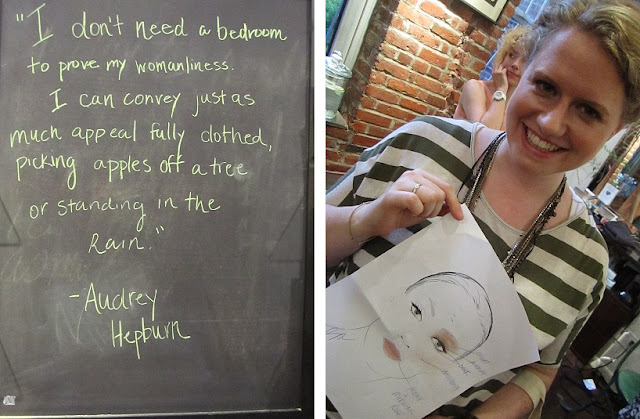 "I don't need a bedroom
to prove my womanliness.
I can convey just as
much appeal fully clothed,
picking apples off a tree
or standing in the
Rain."
- Audrey
Hepburn